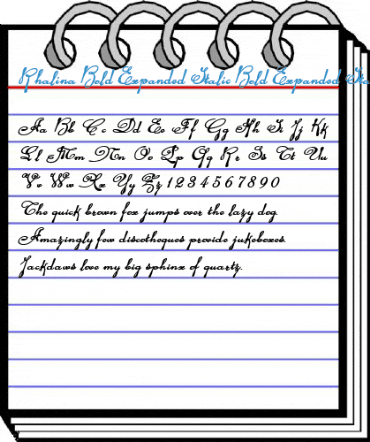 Rhalina Bold Expanded Italic Bold Expanded Ita
Aa Bb Cc Dd Ee Ff Gg Hh Ii Jj Kk
Ll Mm Nn Oo Pp Qq Rr Ss Tt Uu
Vv Ww Xx Yy Zz 1 2 3 4 5 6 7 8 9 0
The quick brown fox jumps over the lazy dog.
Amazingly few discotheques provide jukeboxes.
Jackdaws love my big sphinx of quartz.